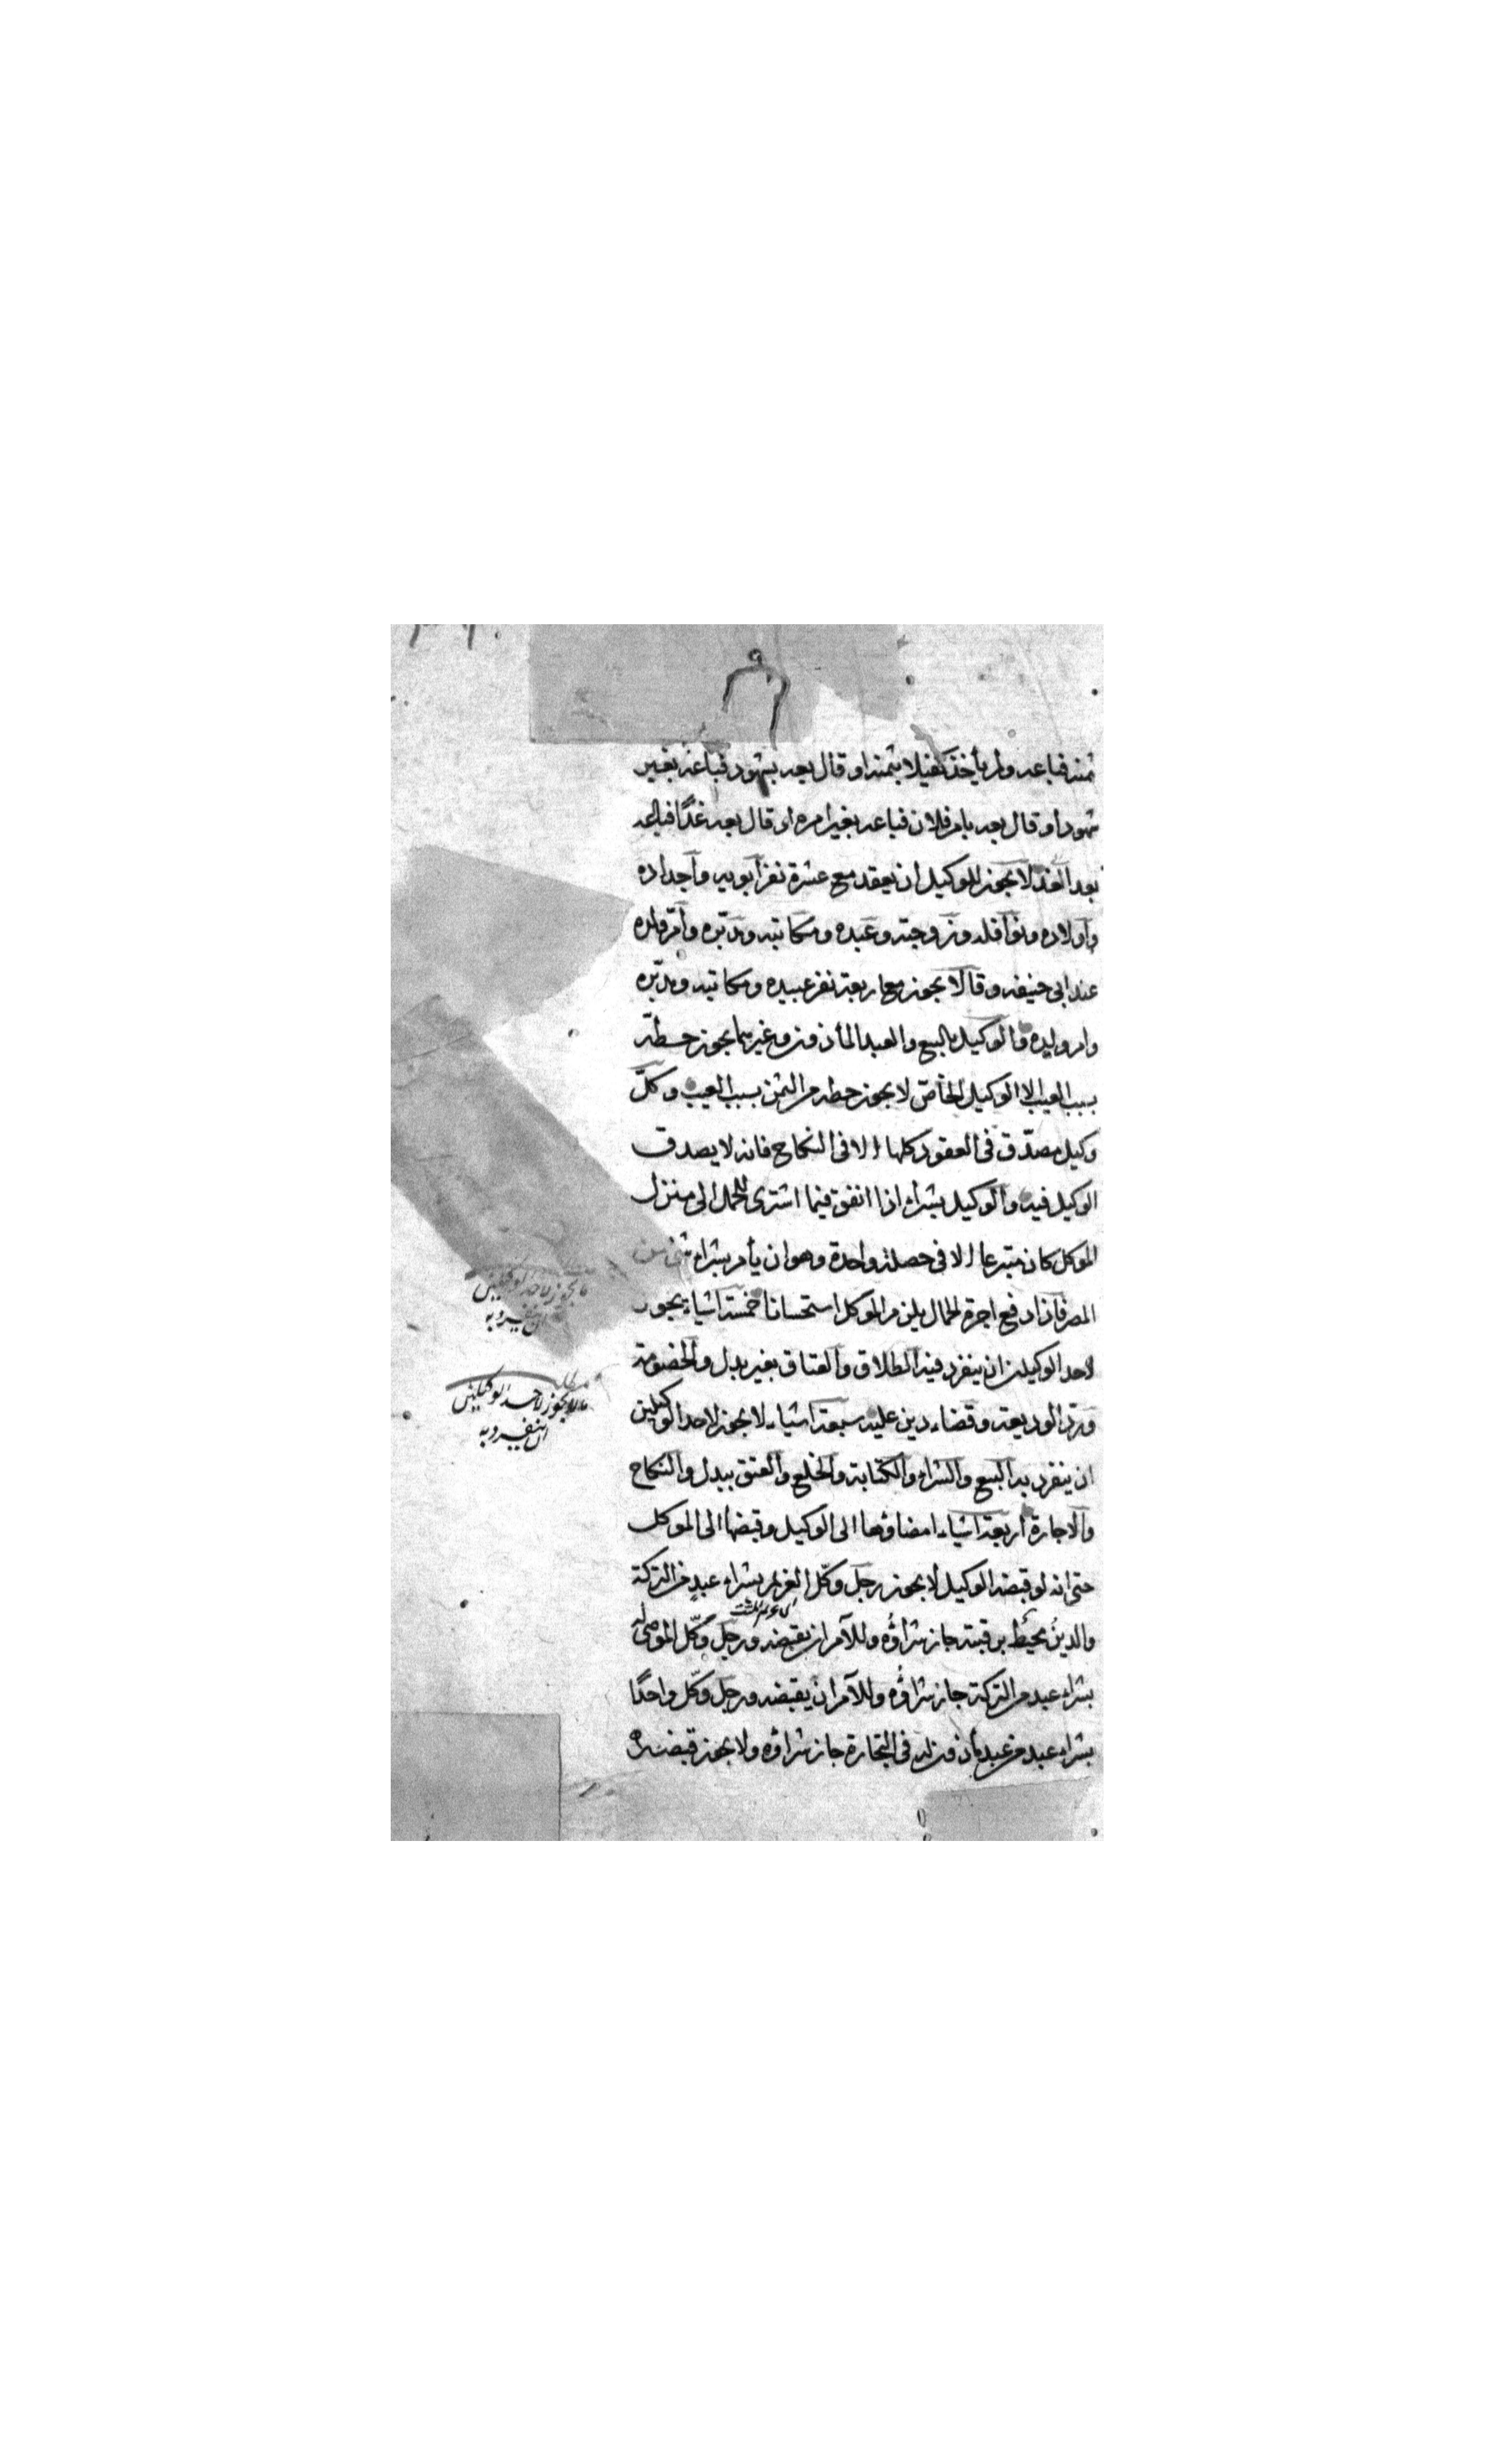 ثمنه فباعه ولم يأخذ كفيلا بثمنه او قال بعه بشهود فباعه بغير
شهود او قال بعه بامر فلان فباعه بغير امره او قال بعه غدًا فباعه
بعد الغد لا يجوز للوكيل ان يعقد مع عشرة نفر ابويه وأجداده
وأولاده ونوافله وزوجته وعبده ومكاتبه ومدبّره وأمّ ولده
عند ابى حنيفه وقالا يجوز مع اربعة نفر عبيده ومكاتبه ومدبّره
وام وليده والوكيل بالبيع والعبد المأذون وغيرهما يجوز حطّه
بسبب العيب الا الوكيل الخاصّ لا يجوز حطه من الثمن بسبب العيب وكلّ
وكيل مصدّق فى العقود كلها الا فى النكاح فانه لا يصدق
الوكيل فيه والوكيل بشراء اذا انفق فيما اشترى للحمل الى منزل
الموكل كان متبرعا الا فى خصلة واحدة وهو ان يأمر بشراء شئ من
المصر فاذا دفع اجرة الحمال يلزم الموكل استحسانا خمسة اشياء يجوز
لاحد الوكيلين ان ينفرد فيه الطلاق والعتاق بغير بدل والخصومة
وردّ الوديعة وقضاء دين عليه سبعة اشياء لا يجوز لاحد الوكيلين
ان ينفرد به البيع والشراء والكتابة والخلع والعتق ببدل والنكاح
والاجارة اربعة اشياء امضاؤها الى الوكيل وقبضها الى الموكل
حتى انه لو قبضه الوكيل لا يجوز رجل وكّل الغريم بشراء عبدٍ من التركة
والدينُ محيط برقبته جاز شراؤه وللآمر ان يقبضه ورجل وكّل الموصى له
بشراء عبد من التركة جاز شراؤه وللآمر ان يقبضه ورجل وكّل واحدًا
بشراء عبد من عبد مأذون له فى التجارة جاز شراؤه ولا يجوز قبضه
ما يجوز لاحد الوكيلين
ان ينفرد به
مطلب
ما لا يجوز لاحد الوكيلين
ان ينفرد به